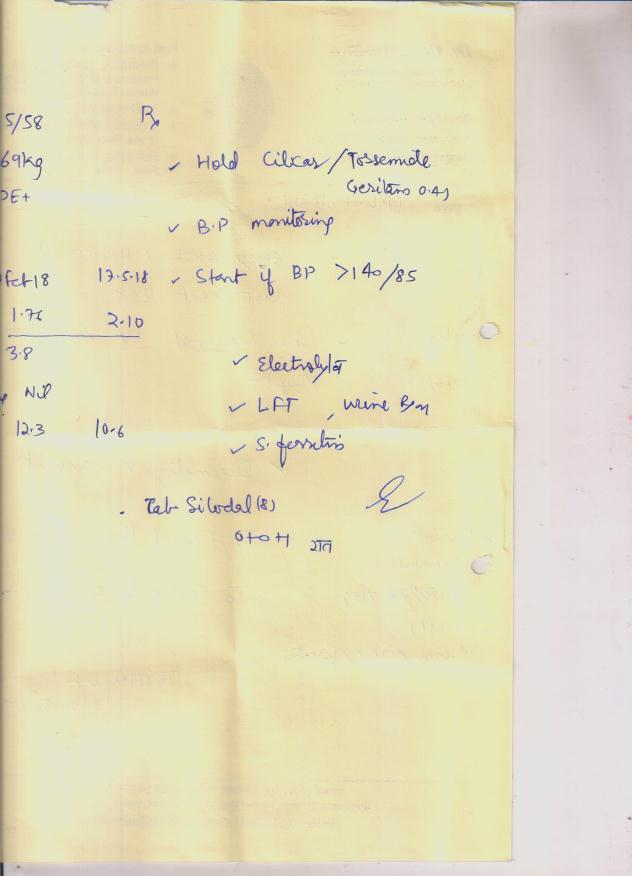 5/58 Rx
69kg ✓ Hold Cilcar / Torsemide
Geritam 0.4)
PE+
✓ B.P monitoring
Feb 18 17.5.18 ✓ Start if BP >140/85
1.76 2.10
3.8
✓ Electrolyte
Nil
✓ LFT , urine
12.3 10.6
✓ S. ferritin
. Tab Silodal (8)
0+0+1 रात